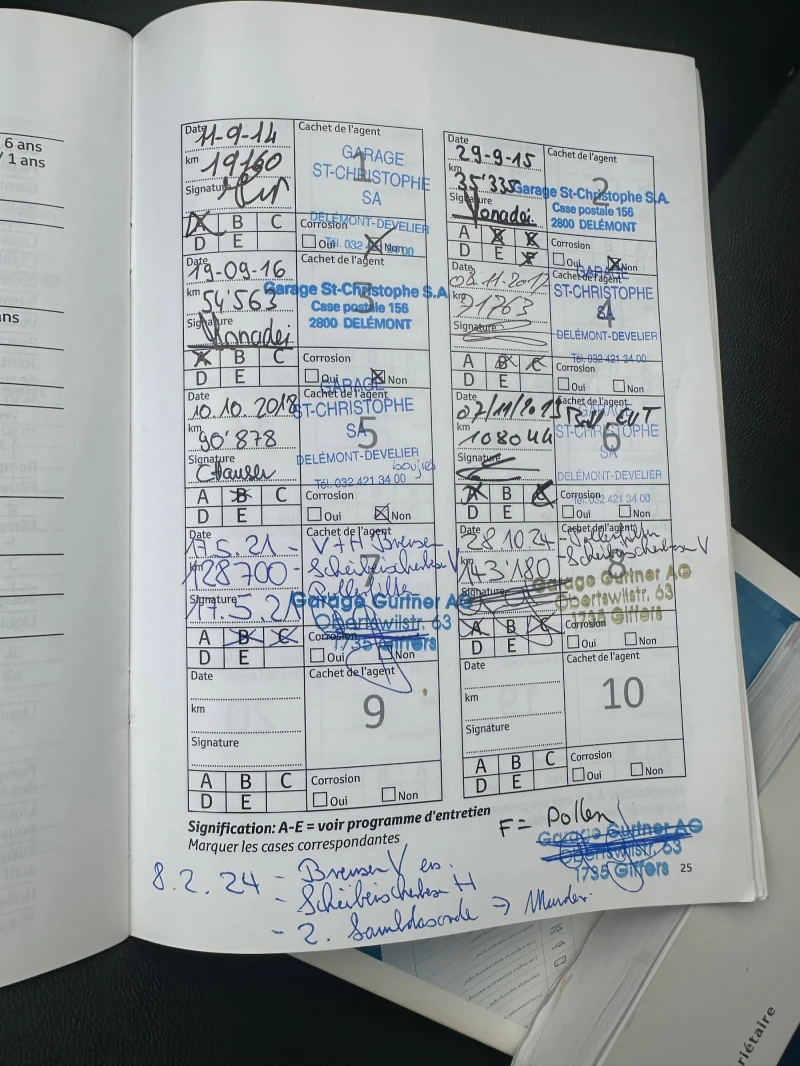 6 ans
/ 1 ans
ns
Date 11-9-14
km 19160
Signature
Cachet de l'agent
1
GARAGE
ST-CHRISTOPHE
SA
DELÉMONT-DEVELIER
A B C
D E
Corrosion
Oui Non
Date 29-9-15
km 35'335
Signature
Cachet de l'agent
2
Garage St-Christophe S.A.
Case postale 156
2800 DELÉMONT
A B C
D E F
Corrosion
Oui Non
Date 19-09-16
km 54'563
Signature
Cachet de l'agent
3
Garage St-Christophe S.A.
Case postale 156
2800 DELÉMONT
A B C
D E
Corrosion
Oui Non
Date 08.11.2017
km 71763
Signature
Cachet de l'agent
4
GARAGE
ST-CHRISTOPHE
SA
DELÉMONT-DEVELIER
Tél. 032 421 34 00
A B C
D E
Corrosion
Oui Non
Date 10.10.2018
km 90'878
Signature
Cachet de l'agent
5
GARAGE
ST-CHRISTOPHE
SA
DELÉMONT-DEVELIER
bougies
Tél. 032 421 34 00
A B C
D E
Corrosion
Oui Non
Date 07/11/2019
km 108044
Signature
Cachet de l'agent
6
ST-CHRISTOPHE
SA
DELÉMONT-DEVELIER
Tél. 032 421 34 00
A B C
D E
Corrosion
Oui Non
Date 17.5.21 - V+H Bremsen
km 128700 - Scheibenscheiben V
Signature 17.5.21
Cachet de l'agent
7
Garage Gurtner AG
Obertswilstr. 63
1735 Giffers
A B C
D E
Corrosion
Oui Non
Date 28.10.24 - Pollenfilter
km 143'180
Signature
Cachet de l'agent
8
Garage Gurtner AG
Obertswilstr. 63
1735 Giffers
A B C
D E
Corrosion
Oui Non
Date
km
Signature
Cachet de l'agent
9
A B C
D E
Corrosion
Oui Non
Date
km
Signature
Cachet de l'agent
10
A B C
D E
Corrosion
Oui Non
Signification: A-E = voir programme d'entretien
Marquer les cases correspondantes
F = Pollen
Garage Gurtner AG
Obertswilstr. 63
1735 Giffers
25
8.2.24 - Bremsen V
- H
- 2.
riétaire